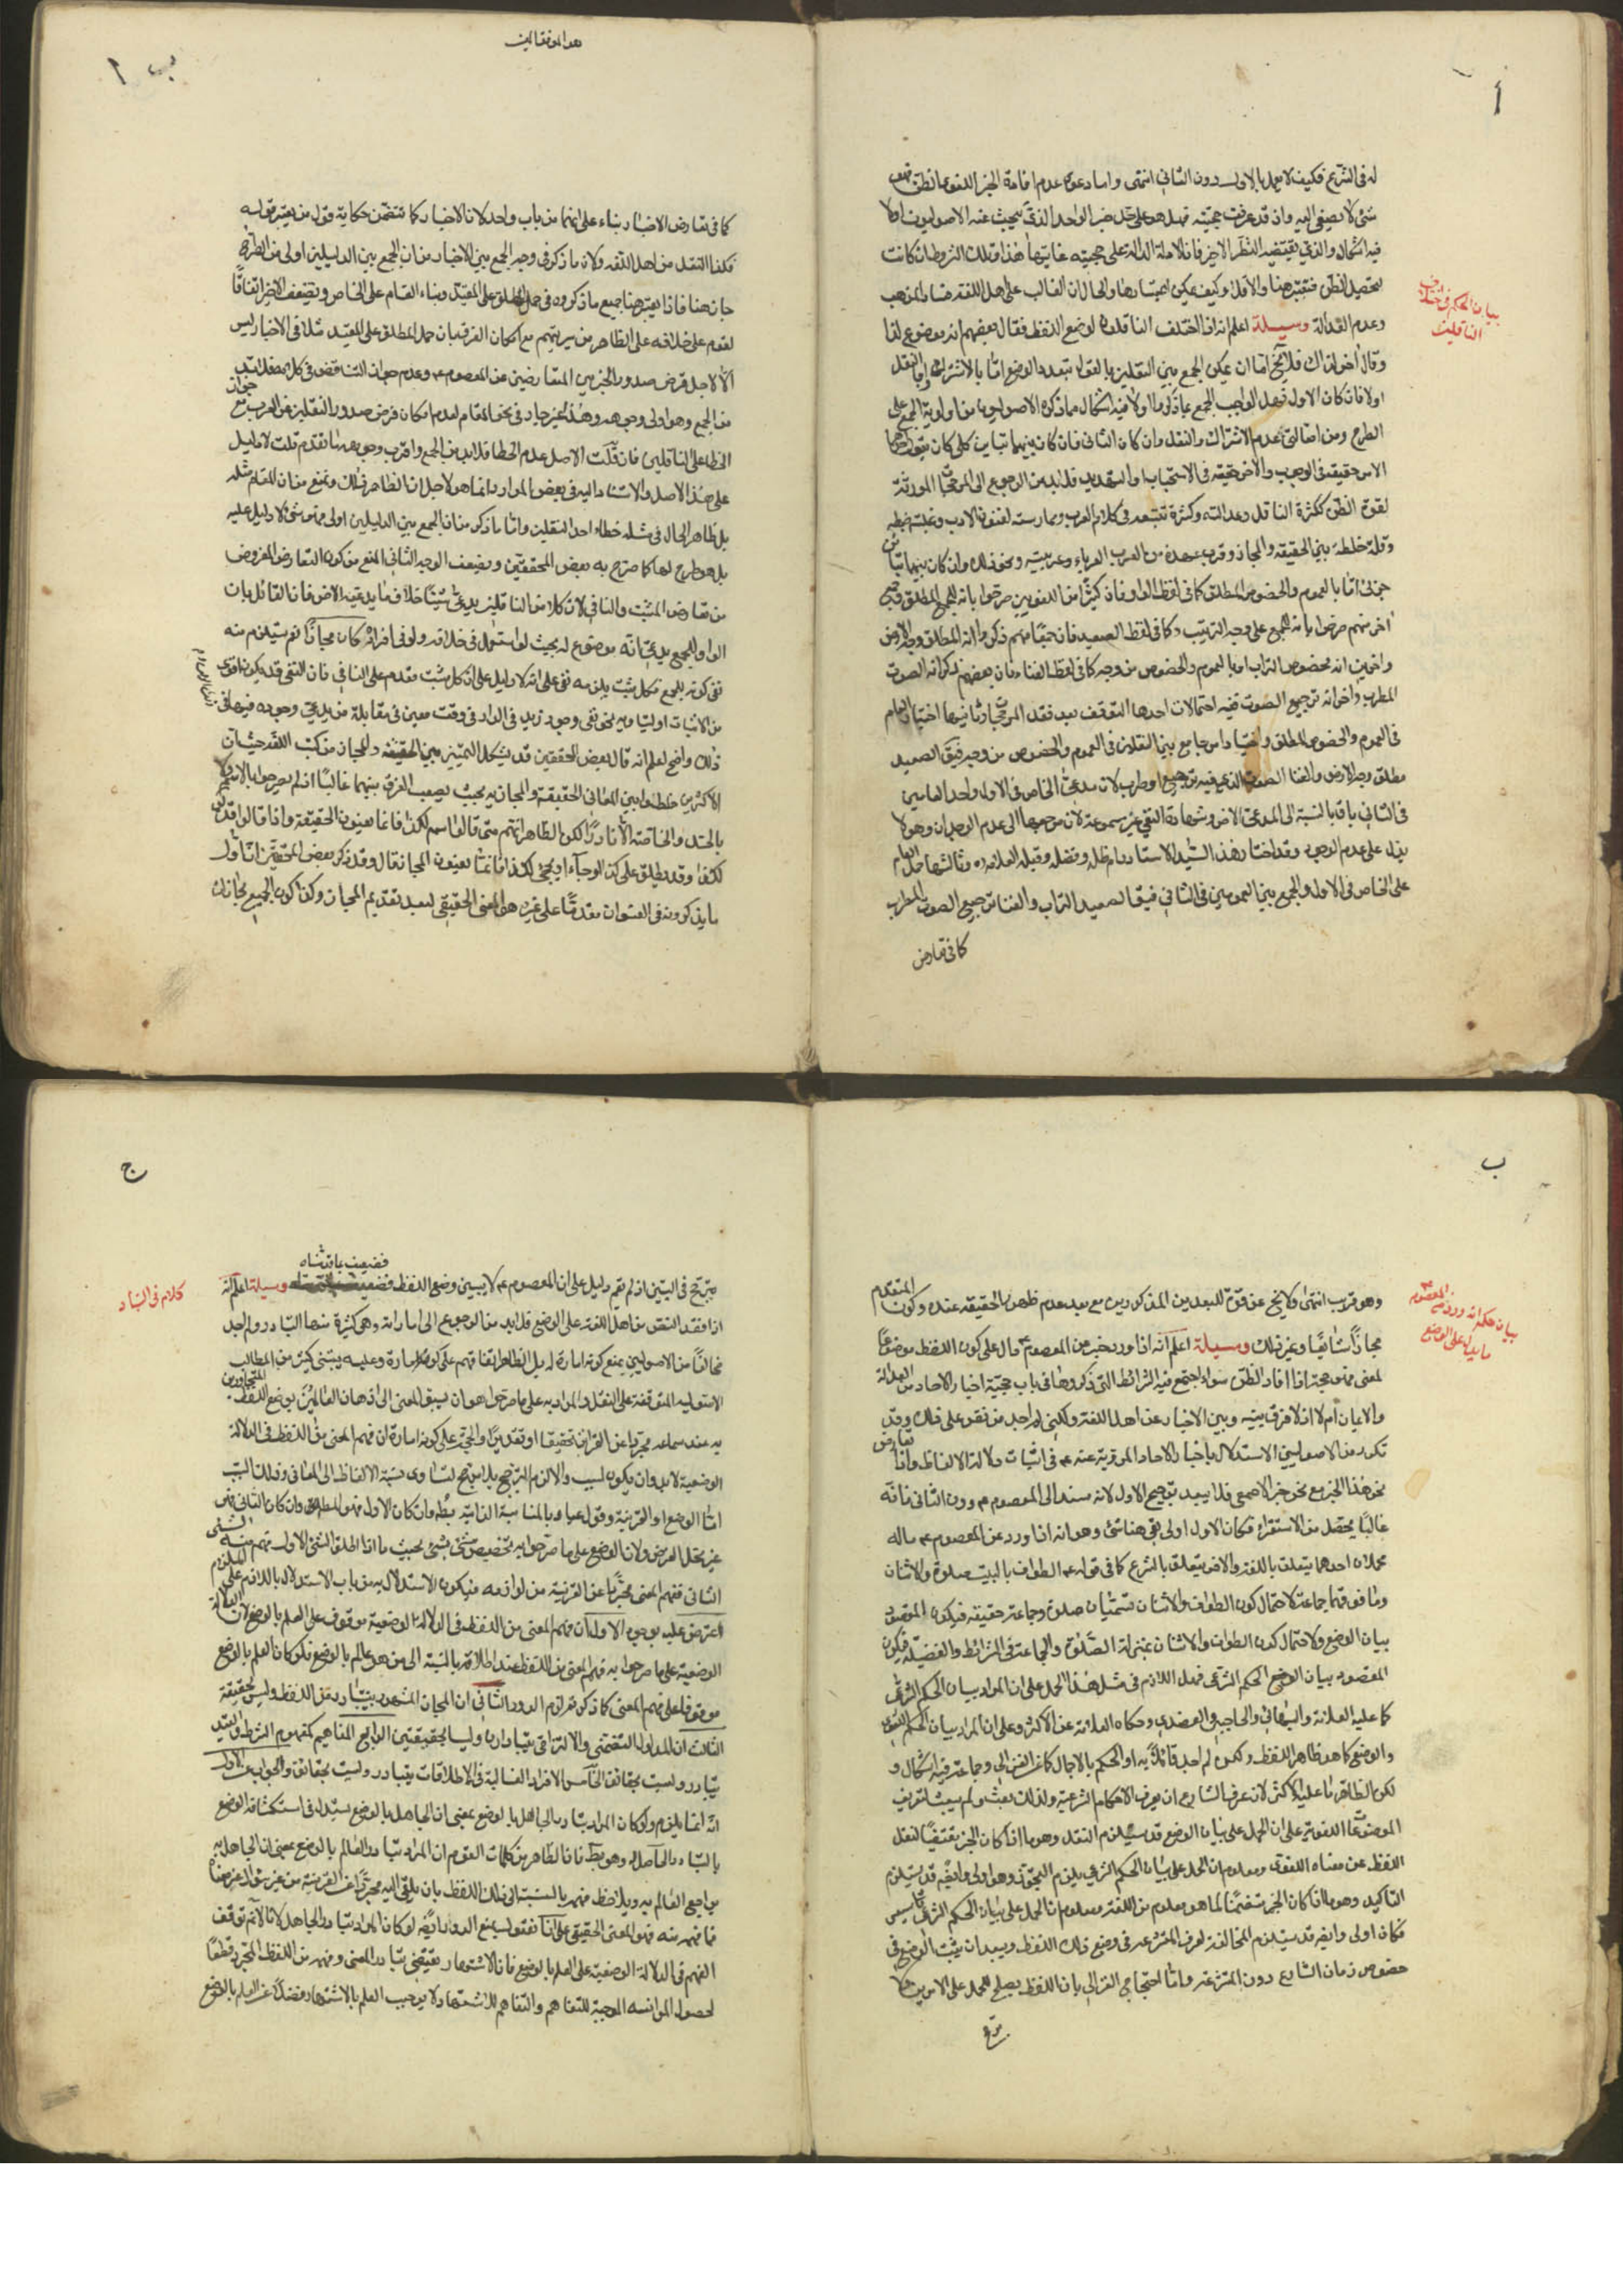 أ
له في الشرع فكيف لا يعمل بالاول دون الثاني انتهى واما دعوى عدم افادة الخبر اللغوي الظن فهو
شئ لا يصغى اليه واذ قد عرفت حجيته فهل هو على حد خبر الواحد الذي يبحث عنه الاصوليون او لا
فيه اشكال والذي يقتضيه النظر الاخير فان الادلة الدالة على حجيته غايتها هذا وتلك الشروط ان كانت
لتحصيل الظن فتعتبر هنا والا فلا وكيف يمكن اعتبارها والحال ان الغالب على اهل اللغة فساد المذهب
وعدم العدالة وسيلة اعلم انه اذا اختلف الناقلون لوضع اللفظ فقال بعضهم انه موضوع لذا
وقال اخر لذاك فلا يخ اما ان يمكن الجمع بين النقلين بالقول بتعدد الوضع اما بالاشتراك او بالنقل
اولا فان كان الاول فهل الواجب الجمع بما ذكر او لا فيه اشكال مما ذكره الاصوليون من اولوية الجمع على
الطرح ومن اصالتي عدم الاشتراك والنقل وان كان الثاني فان كان بينهما تباين كلي كان يقول احدهما
الامر حقيقة في الوجوب والاخر حقيقة في الاستحباب او التهديد فلا بد من الرجوع الى المرجحات المورثة
لقوة الظن ككثرة الناقل وعدالته وكثرة تتبعه في كلام العرب وممارسته لفنون الادب وغلبة ضبطه
وقلة خلطه بين الحقيقة والمجاز وقرب عهده من العرب العرباء وعربيته ونحو ذلك وان كان بينهما تباين
جزئي اما بالعموم والخصوص المطلق كما في لفظ الواو فان كثيرا من اللغويين صرحوا بانه للجمع المطلق وبعض
اخر منهم صرحوا بانه للجمع على وجه الترتيب وكما في لفظ الصعيد فان جمعا منهم ذكروا انه المطلق وجه الارض
واخرين انه بخصوص التراب او بالعموم والخصوص من وجه كما في لفظ الغناء فان بعضهم ذكر انه الصوت
المطرب واخر انه ترجيع الصوت ففيه احتمالات احدها التوقف بعد فقد المرجحات وثانيها اختيار العام
في العموم والخصوص المطلق واختيار امر جامع بين النقلين في العموم والخصوص من وجه فيكون الصعيد
مطلق وجه الارض والغنا الصوت الذي فيه ترجيع او طرب لان مدعي الخاص في الاول واحد العامين
في الثاني باق بالنسبة الى المدعى الاخر وشهادة النفي غير مسموعة لان مرجعها الى عدم الوجدان وهو لا
يدل على عدم الوجود وقد اختار هذا السيد الاستاد دام ظله وفضله وقبله العلامة ره وثالثها حمل العام
على الخاص في الاول والجمع بين العمومين في الثاني فيقال الصعيد التراب والغنا ترجيع الصوت المطرب
كما في تعارض
بيان الحكم في اختلاف
الناقلين
ب
كما في تعارض الاخبار بناء على انهما من باب واحد لان الاخبار كما تتضمن حكاية قول من يعتبر قوله
فكذا النقل من اهل اللغة ولان ما ذكر في وجه الجمع بين الاخبار من ان الجمع بين الدليلين اولى من الطرح
جار هنا فاذا يعتبر هنا جميع ما ذكروه في حمل المطلق على المقيد وبناء العام على الخاص ويضعف الاخير اتفاق
القوم على خلافه على الظاهر من سيرتهم مع امكان الفرق بان حمل المطلق على المقيد مثلا في الاخبار ليس
الا لاجل فرض صدور الخبرين المتعارضين عن المعصوم ع وعدم جواز التناقض في كلامه فلا بد
من الجمع وهو اولى وجوهه وهذا غير جار في نحو المقام لعدم امكان فرض صدور النقلين عن العرب مع جواز
الخطا على الناقلين فان قلت الاصل عدم الخطا فلا بد من الجمع واقرب وجوهه ما تقدم قلت لا دليل
على هذا الاصل والاستناد اليه في بعض الموارد انما هو لاجل ان الظاهر ذلك ونمنع من ان المقام مثله
بل ظاهر الحال في مثله خطاء احد النقلين واما ما ذكر من ان الجمع بين الدليلين اولى فهو شئ لا دليل عليه
بل هو طرح لهما كما صرح به بعض المحققين ويضعف الوجه الثاني المنع من كون التعارض المفروض
من تعارض المثبت والنافي لان كلا من الناقلين يدعي شيئا خلاف ما يدعيه الاخر فان القائل بان
الواو للجمع يدعي انه موضوع له بحيث لو استعمل في خلافه ولو في افراده كان مجازا نعم يستلزم منه
نفي كونه للجمع فكل مثبت يلزمه نفي على انه لا دليل على ان كل مثبت مقدم على النافي فان النفي قد يكون اقوى
من الاثبات اوليا وبه نحو نفي وجود زيد في الدار في وقت معين في مقابلة من يدعي وجوده فيها في
ذلك واضح اعلم انه قال بعض المحققين قد يشكل التميز بين الحقيقة والمجاز من كتب اللغة حيث ان
الاكثرين خلطوا بين المعاني الحقيقية والمجازية بحيث يصعب الفرق بينهما غالبا اذ لم يصرحوا بالاسم ولا
بالحد والخاصة الا نادرا لكن الظاهر انهم متى قالوا اسم لكذا فانما يعنون الحقيقة واذا قالوا قد يق
لكذا وقد يطلق على كذا او جاء او يجئ لكذا فانما يعنون المجاز قال وقد ذكر بعض المحققين ان اول
ما يذكرونه في العنوان مقدما على غيره هو المعنى الحقيقي لبعد تقديم المجاز وكذا كون الجميع مجازات
ب
وهو قريب انتهى ولا يخ عن قوة للبعدين المذكورين مع بعد عدم ظهور الحقيقة عنده وكون المتقدم
مجازا شايعا وغير ذلك وسيلة اعلم انه اذا ورد خبر عن المعصوم ع دال على كون اللفظ موضوعا
لمعنى فهو حجة اذا افاد الظن سواء اجتمع فيه الشرائط التي ذكروها في باب حجية اخبار الاحاد من العدالة
والايمان ام لا اذ لا فرق بينه وبين الاخبار عن اهل اللغة ولكني لم اجد من نص على ذلك وقد
تكرر من الاصوليين الاستدلال باخبار الاحاد المروية عنه ع في اثبات دلالة الالفاظ واذا تعارض
نحو هذا الخبر مع نحو خبر الاصمعي فلا يبعد ترجيح الاول لانه مسند الى المعصوم ع دون الثاني فانه
غالبا يحصل من الاستقراء فكان الاول اولى بقي هنا شئ وهو انه اذا ورد عن المعصوم ع ماله
محملان احدهما يتعلق باللغة والاخر يتعلق بالشرع كما في قوله ع الطواف بالبيت صلوة والاثنان
وما فوقهما جماعة لاحتمال كون الطواف والاثنان يسميان صلوة وجماعة حقيقة فيكون المقصود
بيان الوضع ولاحتمال كون الطواف والاثنان بمنزلة الصلوة والجماعة في الشرائط والفضيلة فيكون
المقصود بيان الحكم الشرعي فهل اللازم في مثل هذا الحمل على ان المراد بيان الحكم الشرعي
كما عليه العلامة والبهائي والحاجبي والعضدي وحكاه العلامة عن الاكثر وعلى ان المراد بيان الحكم اللغوي
والوضعي كما هو ظاهر اللفظ ولكن لم اجد قائلا به او الحكم بالاجمال كما عن الغزالي وجماعة فيه اشكال و
لكن الظاهر ما عليه الاكثر لان عرف الشارع ان يعرف الاحكام الشرعية ولذلك بعث ولم يبعث لتعريف
الموضوعات اللغوية على ان الحمل على بيان الوضع قد يستلزم النقل وهو ما اذا كان الخبر مقتضيا لنقل
اللفظ عن معناه اللغوي ومعلوم ان الحمل على بيان الحكم الشرعي يلزم التجوز وهو اولى وايضا قد يستلزم
التاكيد وهو ما اذا كان الخبر متضمنا لما هو معلوم من اللغة ومعلوم ان الحمل على بيان الحكم الشرعي تاسيس
فكان اولى وايضا قد يستلزم المخالفة لعرف المتشرعة في وضع ذلك اللفظ ويبعد ان يثبت الوضع في
خصوص زمان الشارع دون المتشرعة واما احتجاج الغزالي بان اللفظ يصلح للحمل على الامرين فلا
بيان حكم انه ورد من المعصوم ع
ما يدل على الوضع
ج
فضعيف
يترجح في البين اذ لم يقم دليل على ان المعصوم ع لا يبين وضع اللفظ وسيلة اعلم انه
اذا فقد النص من اهل اللغة على الوضع فلا بد من الرجوع الى امارات وهي كثيرة منها التبادر ولم اجد
مخالفا من الاصوليين يمنع كونه امارة له بل الظاهر اتفاقهم على كونه امارة وعليه يبتني كثير من المطالب
الاصولية المتوقفة على النقل والمراد به على ما صرحوا هو ان يسبق المعنى الى اذهان العالمين بوضع اللفظ
به عند سماعه مجردا عن القرائن تحقيقا او تقديرا والحجة على كونه امارة ان فهم المعنى من اللفظ في الدلالة
الوضعية لا بد وان يكون لسبب والا لزم الترجيح بلا مرجح لتساوي نسبة الالفاظ الى المعاني وذلك السبب
اما الوضع او القرينة وقول عباد بالمناسبة الذاتية بط فان كان الاول فهو المطلوب وان كان الثاني فهو
غير محل الفرض ولان الوضع على ما صرحوا به تخصيص شئ بشئ بحيث ما اذا اطلق الشئ الاول فهم منه الشئ
الثاني ففهم المعنى مجردا عن القرينة من لوازمه فيكون الاستدلال به من باب الاستدلال باللازم على الملزوم
اعترض عليه بوجوه الاول ان فهم المعنى من اللفظ في الدلالة الوضعية موقوف على العلم بالوضع لان الدلالة
الوضعية على ما صرحوا به فهم المعنى من اللفظ عند اطلاقه بالنسبة الى من هو عالم بالوضع فلو كان العلم بالوضع
موقوفا على فهم المعنى كما ذكر لزم الدور الثاني ان المجاز المشهور يتبادر من اللفظ وليس حقيقة
الثالث ان المدلول التضمني والالتزامي يتبادران وليسا بحقيقتين الرابع المفاهيم كمفهوم الشرط والقيد
يتبادر وليست بحقائق الخامس الافراد الغالبة في الاطلاقات يتبادر وليست بحقائق والجواب عن الاول
انه انما يلزم لو كان المراد تبادر الجاهل بالوضع بمعنى ان الجاهل بالوضع يستدل في استكشاف الوضع
بالتبادر الحاصل له وهو بط فان الظاهر من كلمات القوم ان المراد تبادر العالم بالوضع بمعنى ان الجاهل به
يراجع العالم به ويلاحظ فهمه بالنسبة الى ذلك اللفظ بان يلقى اليه مجردا عن القرينة من غير سؤال عن معناه
فما فهم منه فهو المعنى الحقيقي على انا نقول بمنع الدور ايضا لو كان المراد تبادر الجاهل لانا لانم توقف
الفهم في الدلالة الوضعية على العلم بالوضع فان الاشتهار يقتضي تبادر المعنى وفهمه من اللفظ المجرد قطعا
لحصول الموانسة الموجبة للتفاهم والتفاهم للاشتهار ولا يوجب العلم بالاشتهار فضلا عن العلم بالوضع
كلام في التبادر